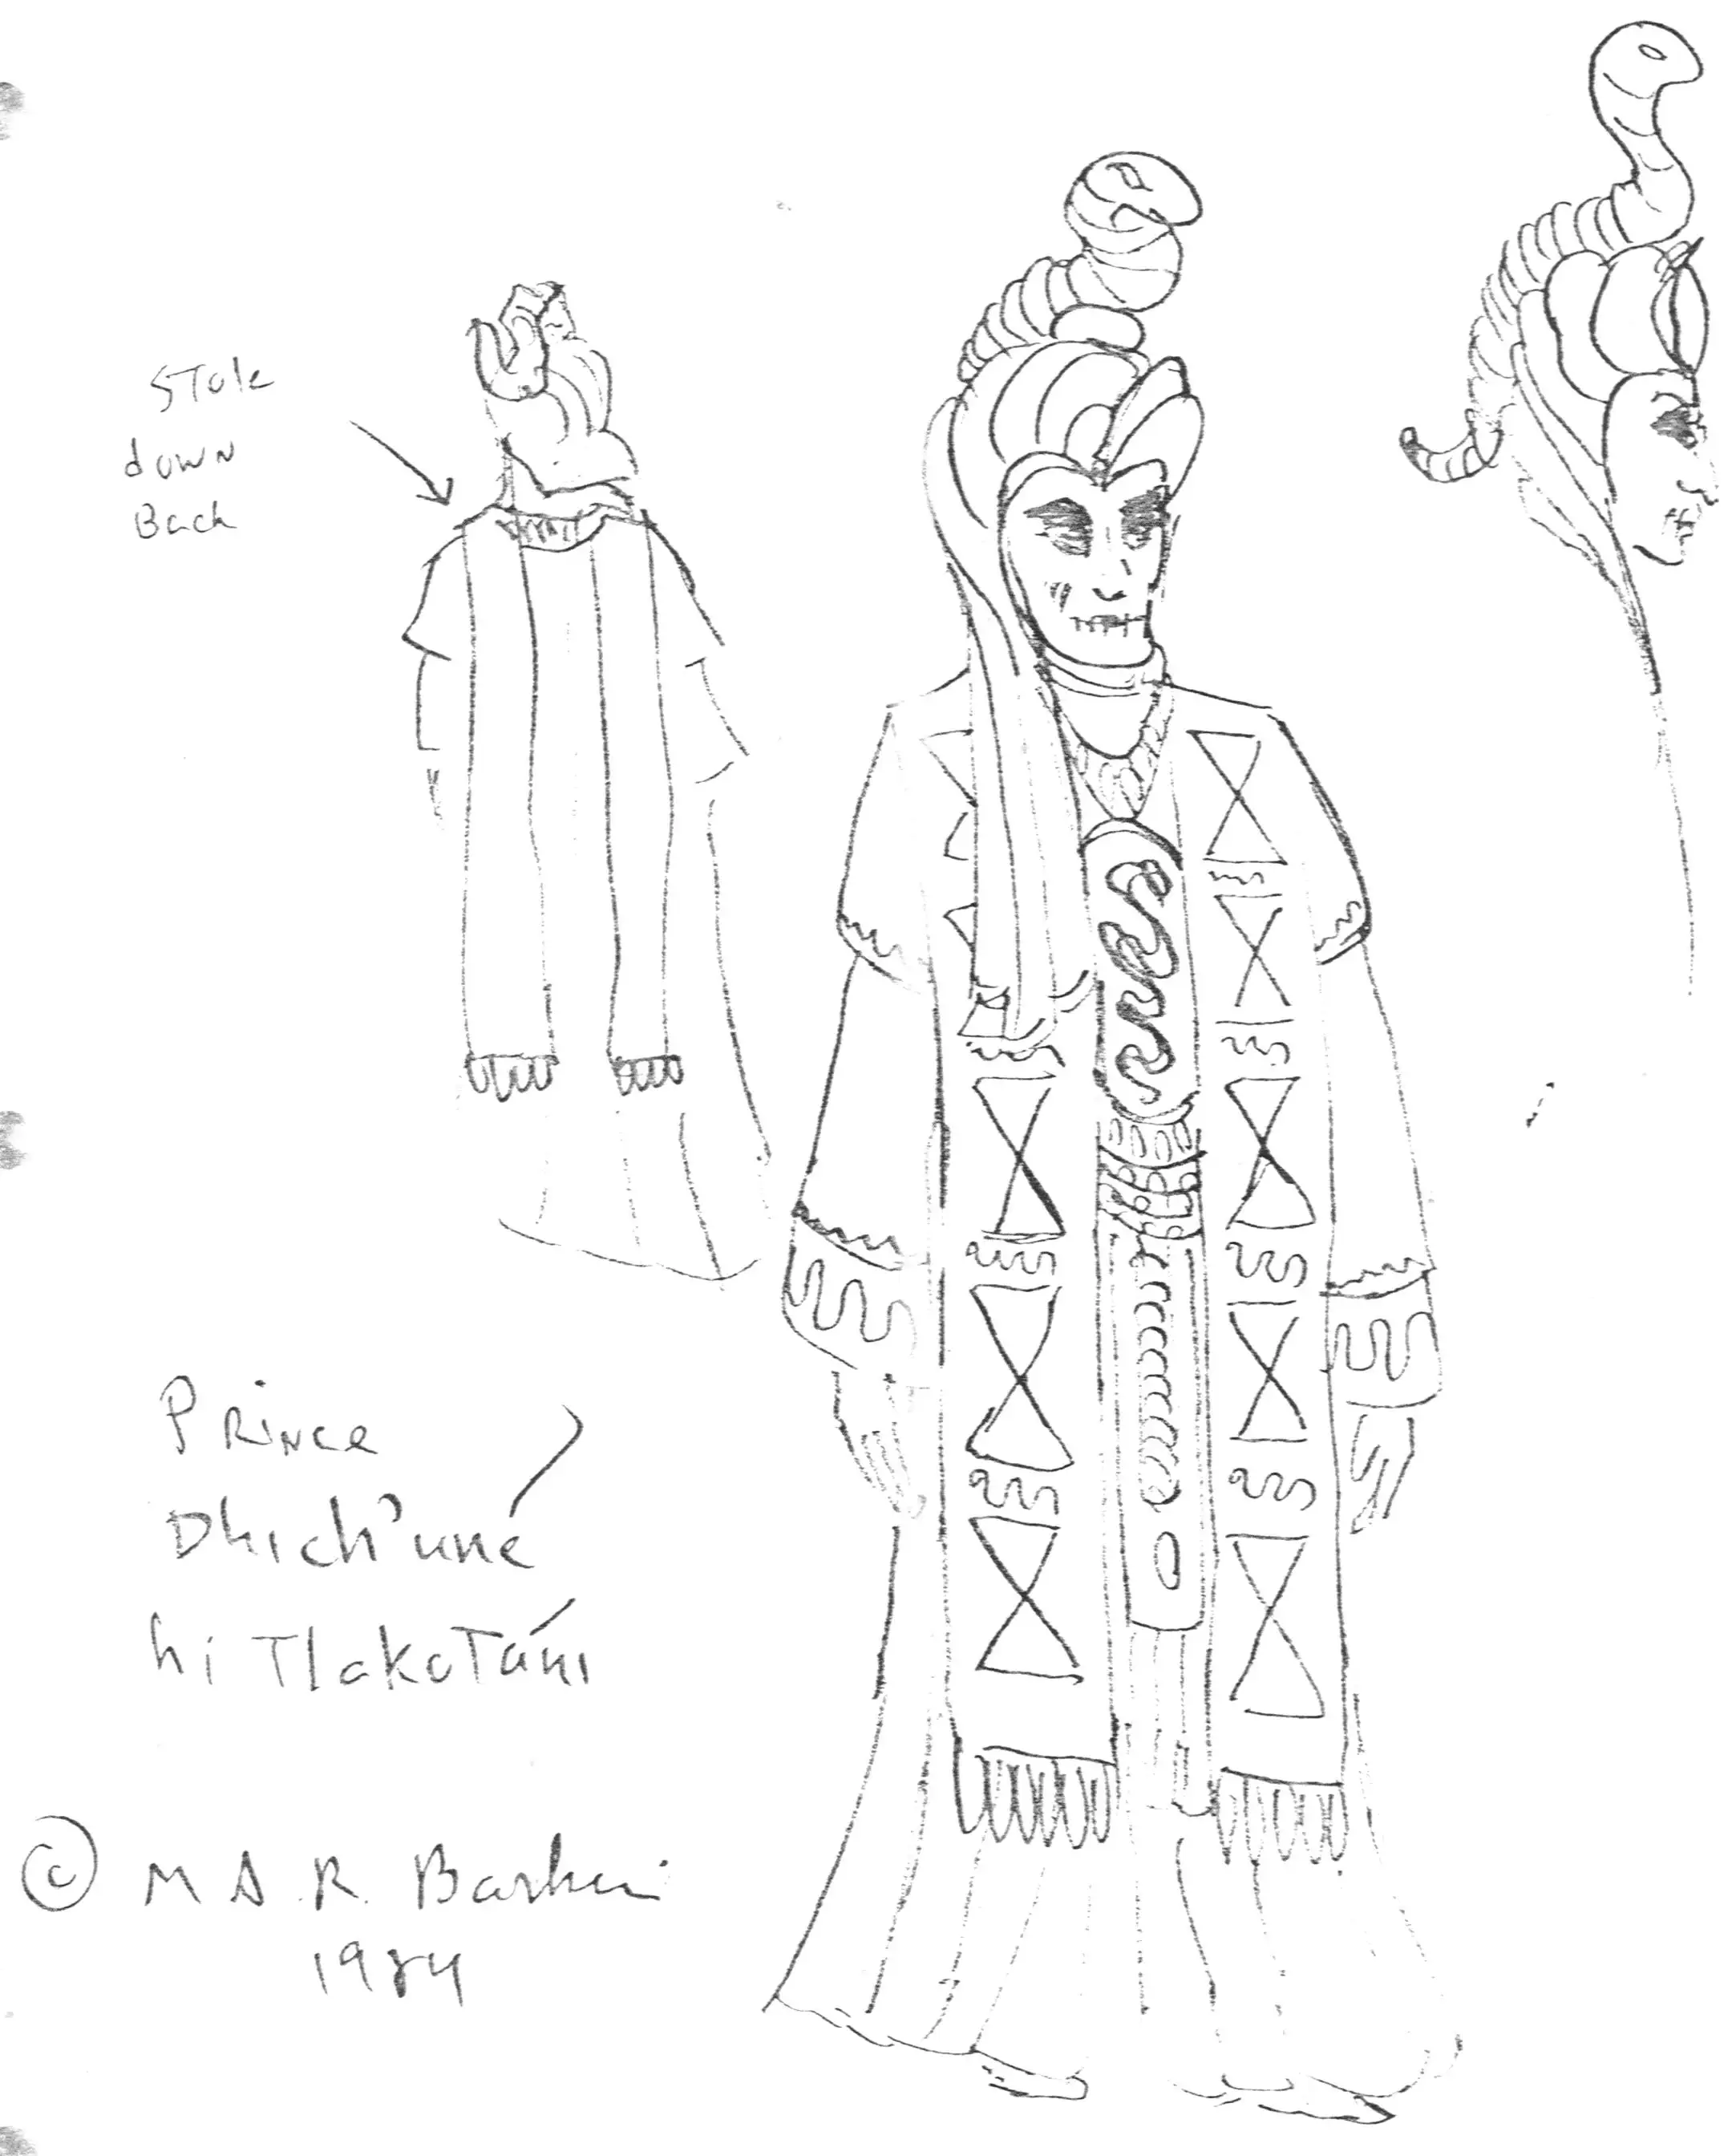 Stole
down
Back
Prince
Dhich'uné
hi Tlakotáni
© M A. R. Barker
1984